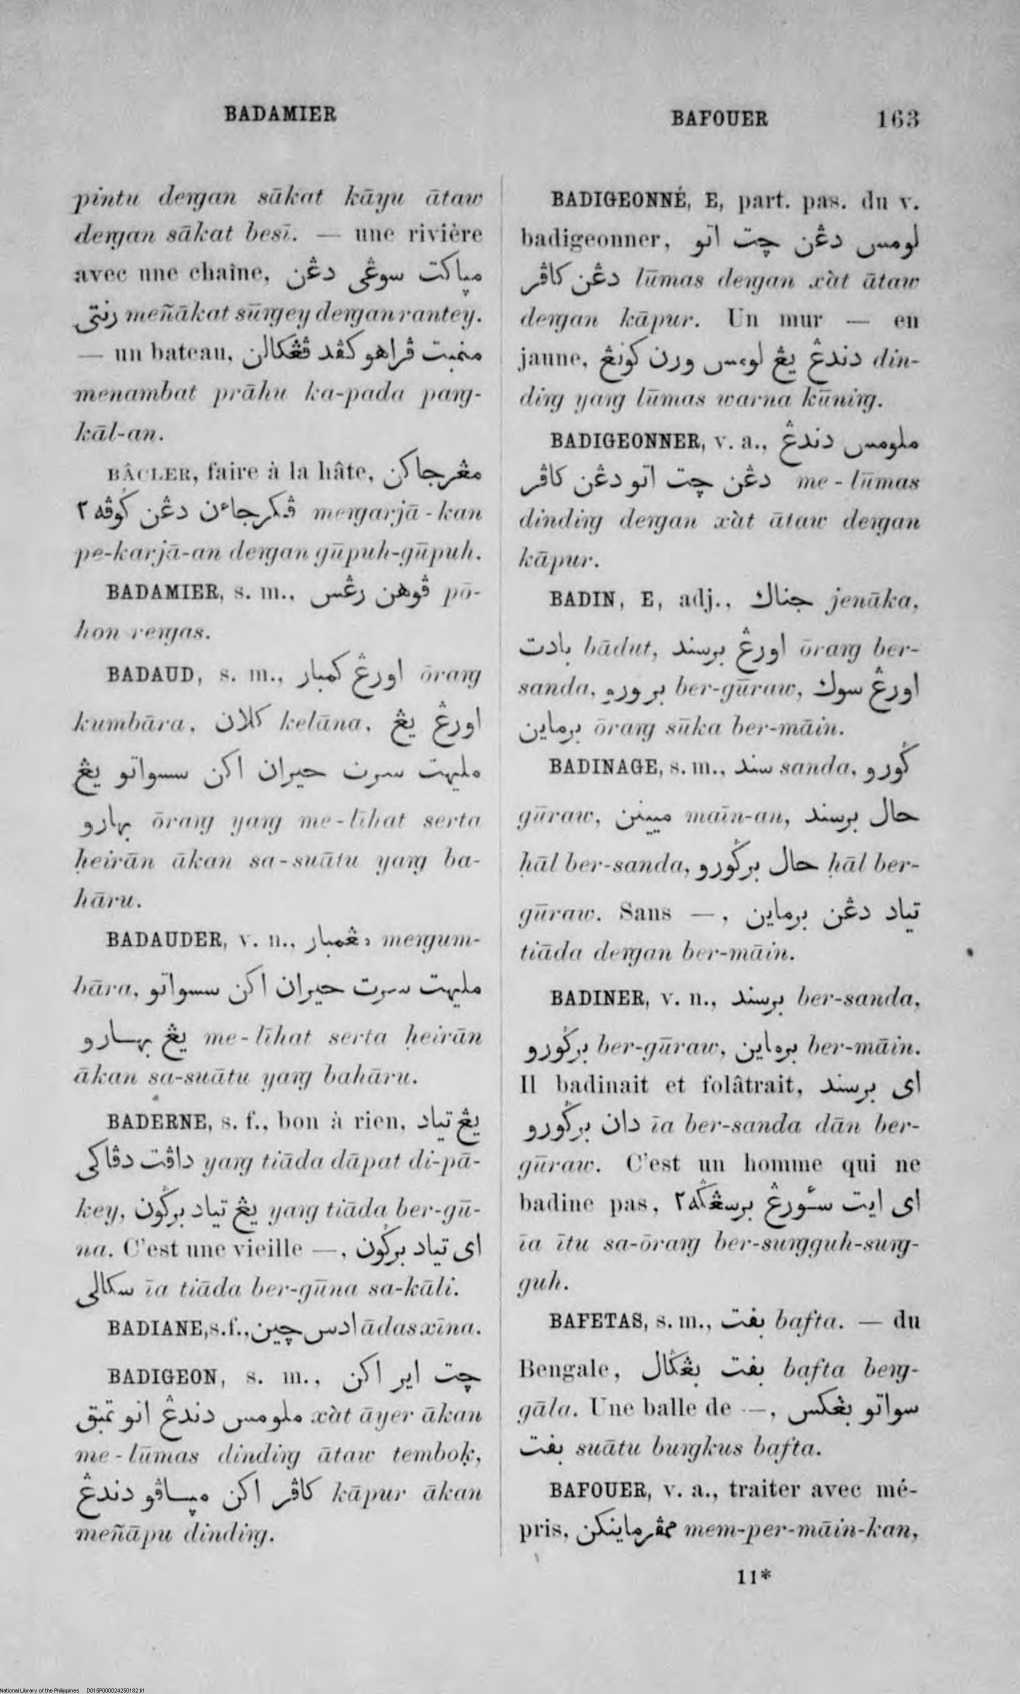 BADAMIER
BAFOUER 163
pintu deṅgan sākat kāyu ātaw
deṅgan sākat besī. — une rivière
avec une chaîne, مپاكت سوڠى دڠن
رنتى meñākat sūṅgey deṅgan rantey.
— un bateau, منمبت ڤراهو كڤد ڤڠكالن
menambat prāhu ka-pada paṅg-
kāl-an.
BÂCLER, faire à la hâte, مڠرجاكن
ڤكرجاءن دڠن ݢوڤه ٢ meṅgarjā-kan
pe-karjā-an deṅgan gūpuh-gūpuh.
BADAMIER, s. m., ڤوهن رڠس pō-
hon reṅgas.
BADAUD, s. m., اورڠ كمبار ōraṅg
kumbāra, كلان kelāna, اورڠ يڠ
مليهت سرت حيران اكن سسواتو يڠ
بهارو ōraṅg yaṅg me-līhat serta
ḥeirān ākan sa-suātu yaṅg ba-
hāru.
BADAUDER, v. n., مڠمبار meṅgum-
bāra, مليهت سرت حيران اكن سسواتو
يڠ بهارو me-līhat serta ḥeirān
ākan sa-suātu yaṅg bahāru.
BADERNE, s. f., bon à rien, يڠ تياد
داڤت دڤاكى yaṅg tiāda dāpat di-pā-
key, يڠ تياد برݢون yaṅg tiāda ber-gū-
na. C'est une vieille —, اى تياد برݢون
سكالى īa tiāda ber-gūna sa-kāli.
BADIANE, s. f., ادس چين ādas xīna.
BADIGEON, s. m., چت اير اكن
ملومس دندڠ اتو تمبق xàt āyer ākan
me-lūmas dindiṅg ātaw temboḳ,
كاڤر اكن مپاڤو دندڠ kāpur ākan
meñāpu dindiṅg.
BADIGEONNÉ, E, part. pas. du v.
badigeonner, لومس دڠن چت اتو
دڠن كاڤر lūmas deṅgan xàt ātaw
deṅgan kāpur. Un mur — en
jaune, دندڠ يڠ لومس ورن كونڠ din-
diṅg yaṅg lūmas warna kūniṅg.
BADIGEONNER, v. a., ملومس دندڠ
دڠن چت اتو دڠن كاڤر me-lūmas
dindiṅg deṅgan xàt ātaw deṅgan
kāpur.
BADIN, E, adj., جناك jenāka,
بادت bādut, اورڠ برسند ōraṅg ber-
sanda, برورو ber-gūraw, اورڠ سوك
برماين ōraṅg sūka ber-māin.
BADINAGE, s. m., سند sanda, ݢورو
gūraw, مييين maīn-an, حال برسند
ḥāl ber-sanda, حال برݢورو ḥāl ber-
gūraw. Sans —, تياد دڠن برماين
tiāda deṅgan ber-māin.
BADINER, v. n., برسند ber-sanda,
برݢورو ber-gūraw, برماين ber-māin.
Il badinait et folâtrait, اى برسند
دان برݢورو īa ber-sanda dān ber-
gūraw. C'est un homme qui ne
badine pas, اى ايت سٔورڠ برسڠݢه٢
īa ītu sa-ōraṅg ber-suṅgguh-suṅg-
guh.
BAFETAS, s. m., بفت bafta. — du
Bengale, بفت بڠݢال bafta beṅg-
gāla. Une balle de —, سواتو بڠكس
بفت suātu buṅgkus bafta.
BAFOUER, v. a., traiter avec mé-
pris, ممڤرماينكن mem-per-māin-kan,
11*
National Library of the Philippines